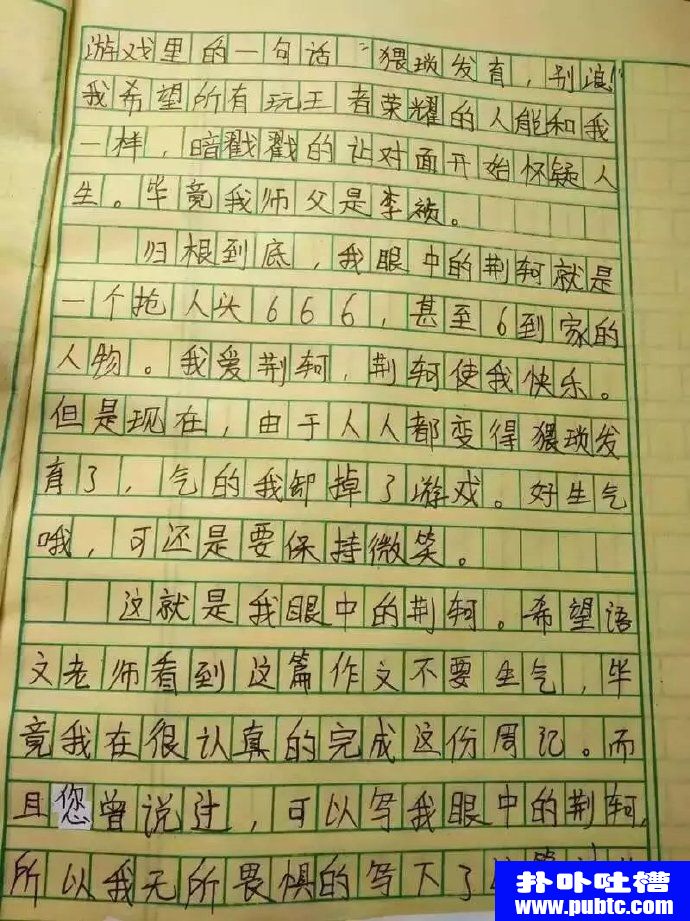 游戏里的一句话："猥琐发育，别浪！"
我希望所有玩王者荣耀的人能和我
一样，暗戳戳的让对面开始怀疑人
生。毕竟我师父是李祯。
归根到底，我眼中的荆轲就是
一个抢人头666，甚至6到家的
人物。我爱荆轲，荆轲使我快乐。
但是现在，由于人人都变得猥琐发
育了，气的我卸掉了游戏。好生气
哦，可还是要保持微笑。
这就是我眼中的荆轲。希望语
文老师看到这篇作文不要生气，毕
竟我在很认真的完成这份周记。而
且您曾说过，可以写我眼中的荆轲，
所以我无所畏惧的写下了
扑卟吐槽
www.pubtc.com